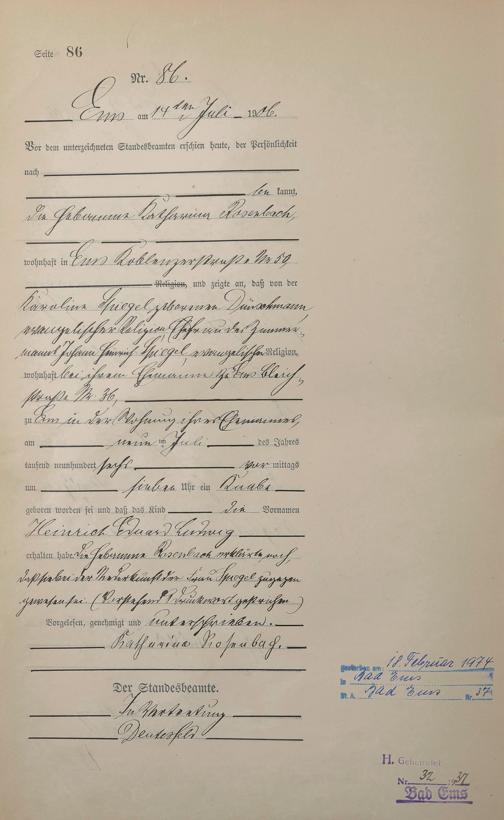 Seite 86
Nr. 86.
Ems am 14ten Juli 1906.
Vor dem unterzeichneten Standesbeamten erschien heute, der Persönlichkeit
nach
be kannt,
die Hebamme Katharina Rosenbach,
wohnhaft in Ems Koblenzerstraße Nr 50,
Religion, und zeigte an, daß von der
Karoline Spiegel geborenen
evangelischer Religion, Ehefrau des Zimmer-
manns Johann Heinrich Spiegel evangelischer Religion,
wohnhaft bei ihrem Ehemanne zu Ems Bleich-
straße Nr 36,
zu Ems in der Wohnung ihres Ehemannes,
am neun ten Juli des Jahres
tausend neunhundert sechs vor mittags
um sieben Uhr ein Knabe
geboren worden sei und daß das Kind die Vornamen
Heinrich Eduard Ludwig
erhalten habe. Die Hebamme Rosenbach erklärte noch,
daß sie bei der Niederkunft der Frau Spiegel zugegen
gewesen sei. (Vorstehend 1 Druckwort gestrichen)
Vorgelesen, genehmigt und unterschrieben.
Katharina Rosenbach.
Der Standesbeamte.
In Vertretung
Gestorben am: 18. Februar 1974
in Bad Ems
St. A. Bad Ems Nr. 37
H. Geheiratet
Nr. 32 1937
Bad Ems